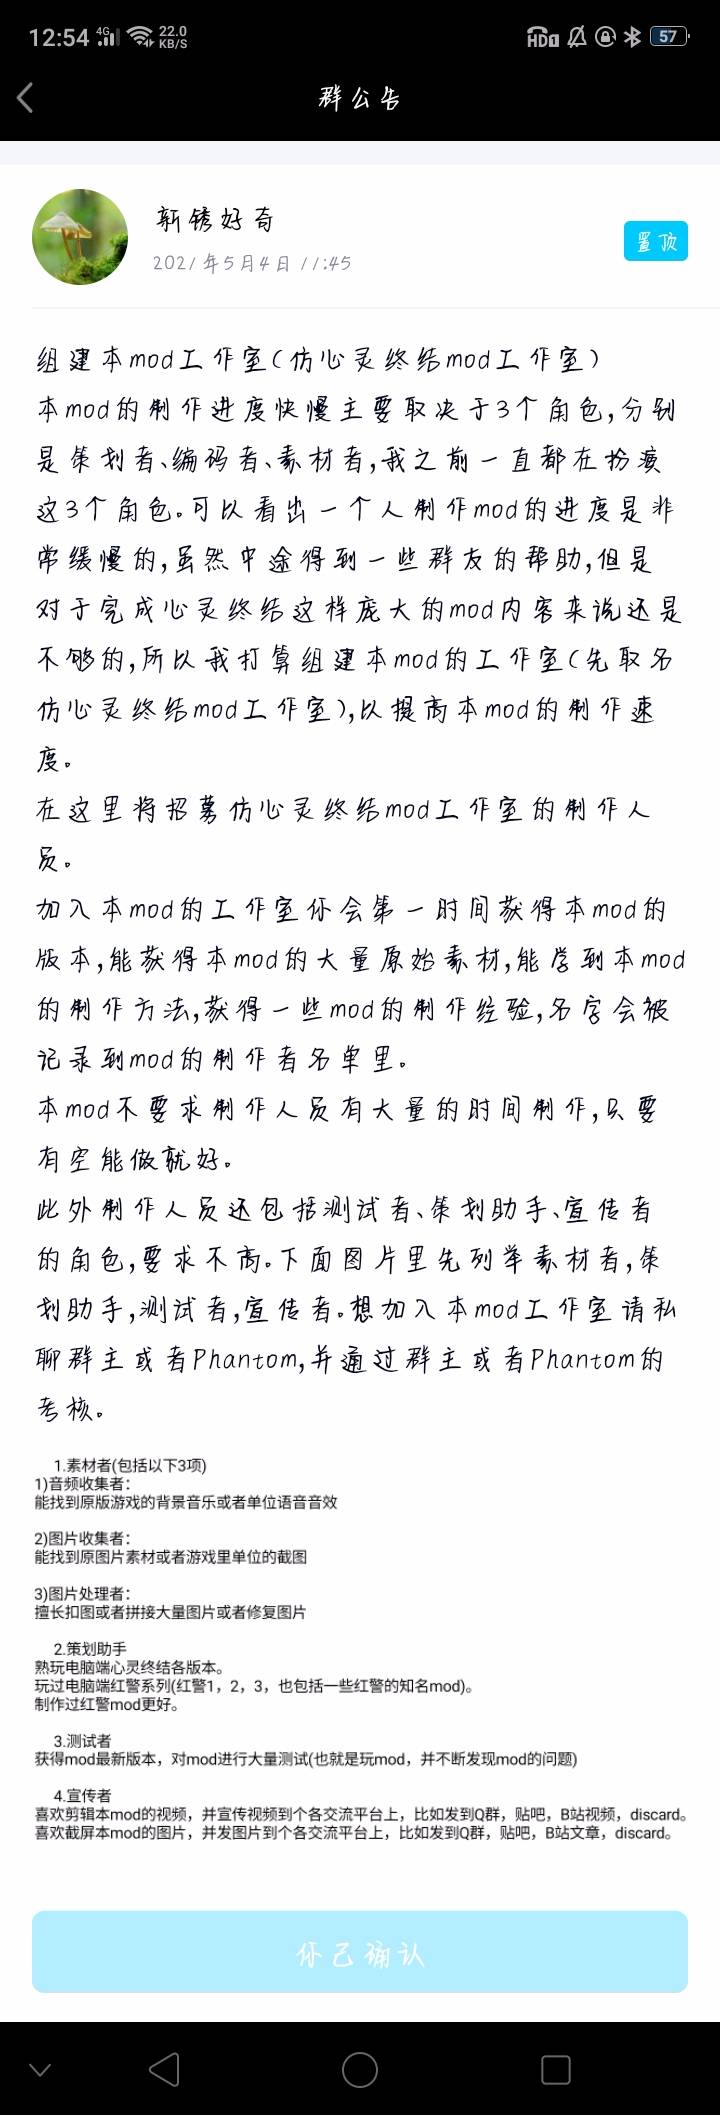 12:54 4G 22.0 KB/S HD1 57
群公告
新锈好奇
2021年5月4日 11:45
置顶
组建本mod工作室(仿心灵终结mod工作室)
本mod的制作进度快慢主要取决于3个角色,分别
是策划者、编码者、素材者,我之前一直都在扮演
这3个角色。可以看出一个人制作mod的进度是非
常缓慢的,虽然中途得到一些群友的帮助,但是
对于完成心灵终结这样庞大的mod内容来说还是
不够的,所以我打算组建本mod的工作室(先取名
仿心灵终结mod工作室),以提高本mod的制作速
度。
在这里将招募仿心灵终结mod工作室的制作人
员。
加入本mod的工作室你会第一时间获得本mod的
版本,能获得本mod的大量原始素材,能学到本mod
的制作方法,获得一些mod的制作经验,名字会被
记录到mod的制作者名单里。
本mod不要求制作人员有大量的时间制作,只要
有空能做就好。
此外制作人员还包括测试者、策划助手、宣传者
的角色,要求不高。下面图片里先列举素材者,策
划助手,测试者,宣传者。想加入本mod工作室请私
聊群主或者Phantom,并通过群主或者Phantom的
考核。
1.素材者(包括以下3项)
1)音频收集者:
能找到原版游戏的背景音乐或者单位语音音效
2)图片收集者:
能找到原图片素材或者游戏里单位的截图
3)图片处理者:
擅长扣图或者拼接大量图片或者修复图片
2.策划助手
熟玩电脑端心灵终结各版本。
玩过电脑端红警系列(红警1，2，3，也包括一些红警的知名mod)。
制作过红警mod更好。
3.测试者
获得mod最新版本，对mod进行大量测试(也就是玩mod，并不断发现mod的问题)
4.宣传者
喜欢剪辑本mod的视频，并宣传视频到个各交流平台上，比如发到Q群，贴吧，B站视频，discard。
喜欢截屏本mod的图片，并发图片到个各交流平台上，比如发到Q群，贴吧，B站文章，discard。
你已确认